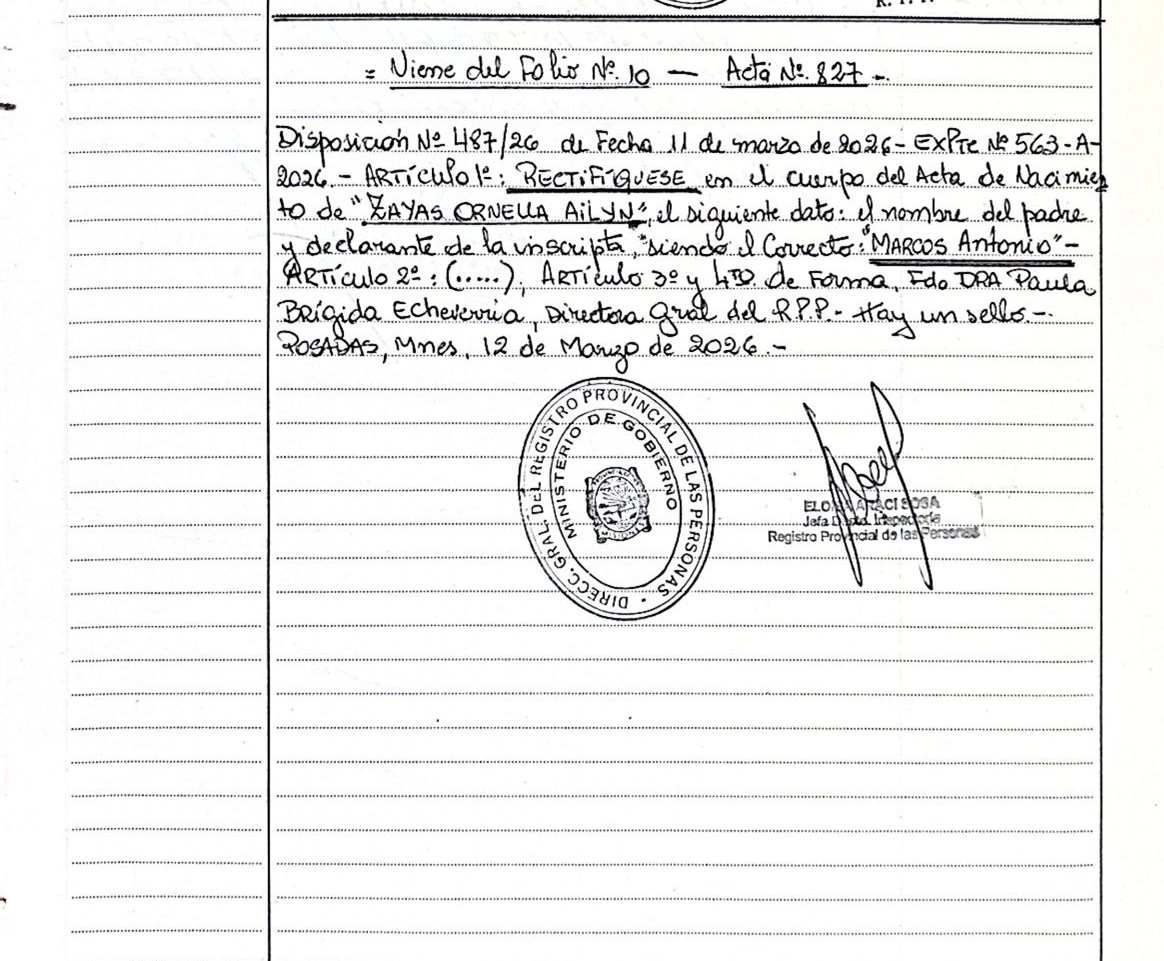 = Viene del Folio Nº 10 — Acta Nº 827 -.
Disposición Nº 487/26 de Fecha 11 de marzo de 2026 - EXPTE Nº 563-A-
2026.- ARTÍCULO 1º: RECTIFÍQUESE en el cuerpo del Acta de Nacimien
to de "ZAYAS ORNELLA AILYN", el siguiente dato: el nombre del padre
y declarante de la inscripta, "siendo el Correcto: "MARCOS Antonio" -
ARTÍCULO 2º: (.....), ARTÍCULO 3º y 4TO. de Forma, Fdo DRA Paula
Brígida Echeverria, Directora Gral del R.P.P.- Hay un sello.-.
POSADAS, Mnes, 12 de Marzo de 2026.-
DIRECC. GRAL. DEL REGISTRO PROVINCIAL DE LAS PERSONAS
MINISTERIO DE GOBIERNO
ARACI SOSA
Jefa Dpto. Inspectoría
Registro Provincial de las Personas